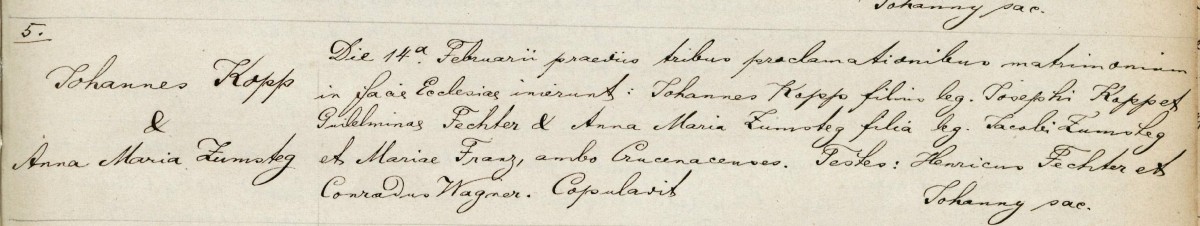 Johanny sac.
5.
Johannes Kopp
&
Anna Maria Zumsteg
Die 14a. Februarii praeviis tribus proclamationibus matrimonium
in facie Ecclesiae inierunt: Johannes Kopp filius leg. Josephi Kopp et
Guilelminae Fechter & Anna Maria Zumsteg filia leg. Jacobi Zumsteg
et Mariae Franz, ambo Crucenacenses. Testes: Henricus Fechter et
Conradus Wagner. Copulavit
Johanny sac.